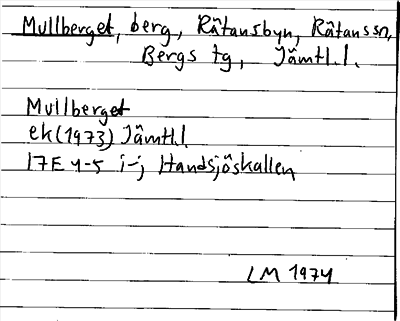 Mullberget, berg, Rätansbyn, Rätans sn,
Bergs tg, Jämtl. l.
Mullberget
ek (1973) Jämtl. l
17E 4-5 i-j Handsjöskallen
LM 1974